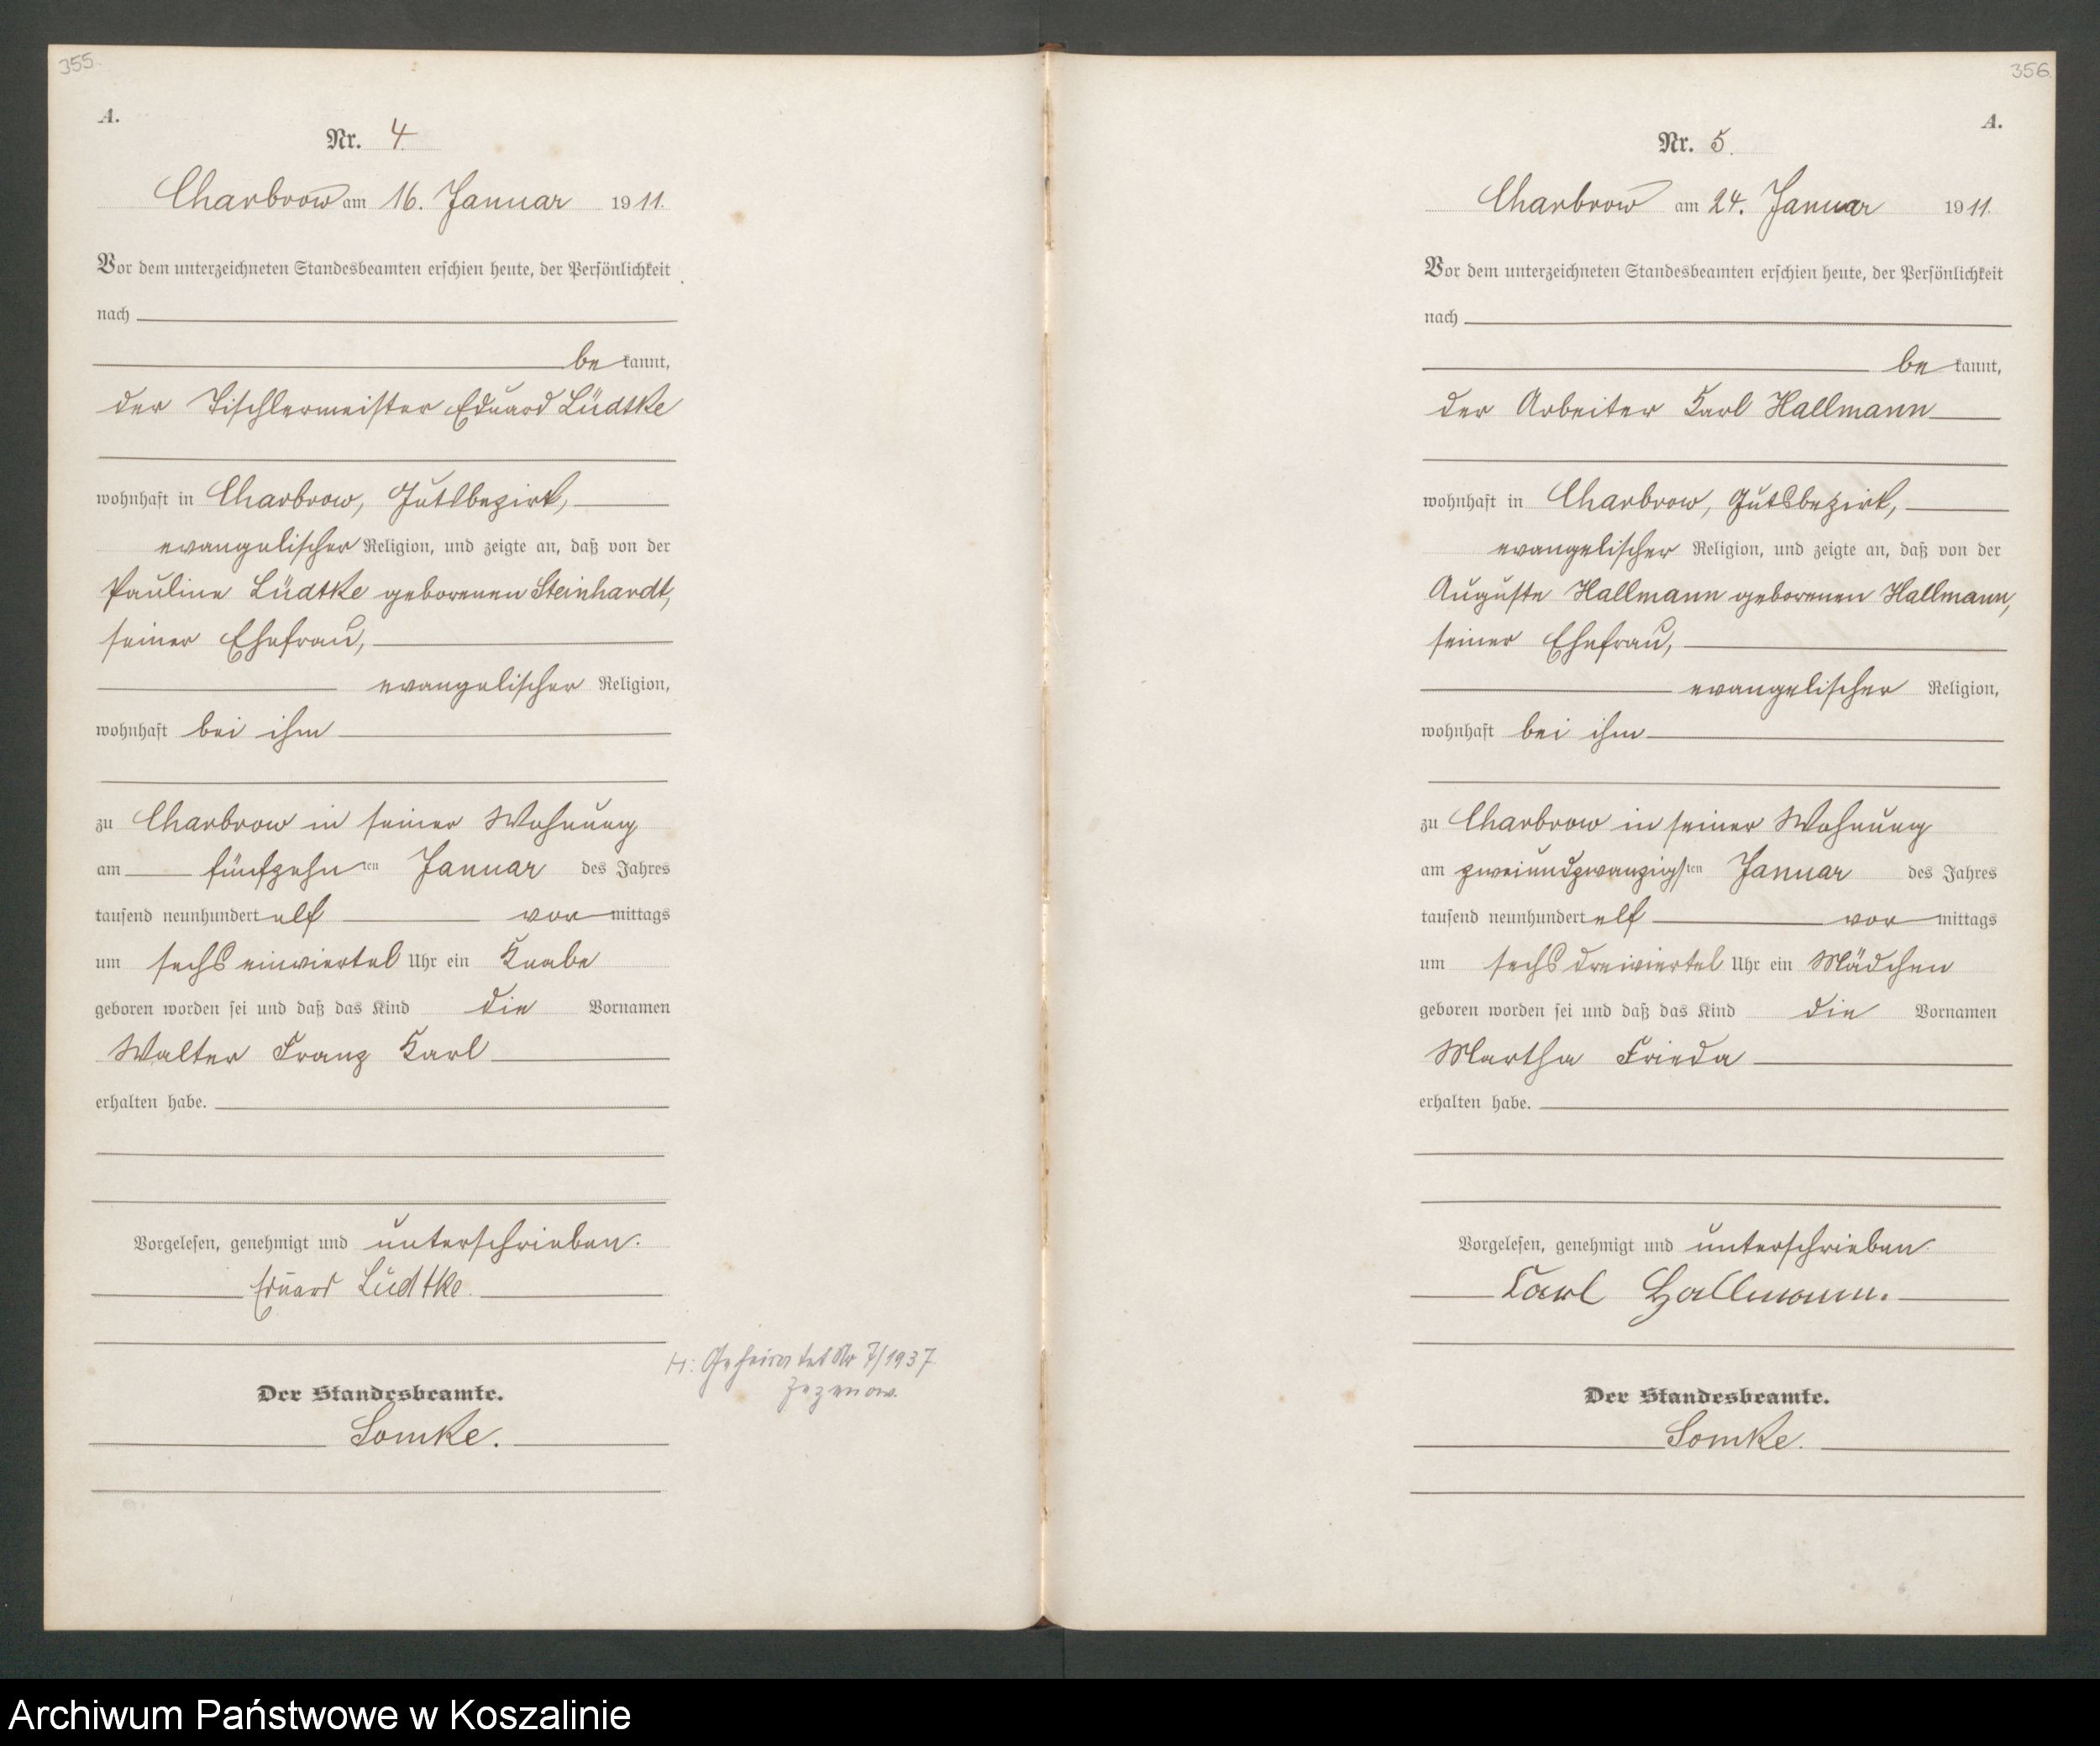 355.
A.
Nr. 4.
Charbrow am 16. Januar 1911.
Vor dem unterzeichneten Standesbeamten erschien heute, der Persönlichkeit
nach
be kannt,
der Tischlermeister Eduard Lüdtke
wohnhaft in Charbrow, Gutsbezirk,
evangelischer Religion, und zeigte an, daß von der
Pauline Lüdtke geborenen Steinhardt,
seiner Ehefrau,
evangelischer Religion,
wohnhaft bei ihm
zu Charbrow in seiner Wohnung
am fünfzehn ten Januar des Jahres
tausend neunhundert elf vor mittags
um sechs einviertel Uhr ein Knabe
geboren worden sei und daß das Kind die Vornamen
Walter Franz Karl
erhalten habe.
Vorgelesen, genehmigt und unterschrieben.
Eduard Lüdtke.
H: Geheiratet Nr 7/1937
Zezenow.
Der Standesbeamte.
Lomke.
356.
A.
Nr. 5.
Charbrow am 24. Januar 1911.
Vor dem unterzeichneten Standesbeamten erschien heute, der Persönlichkeit
nach
be kannt,
der Arbeiter Karl Hallmann
wohnhaft in Charbrow, Gutsbezirk,
evangelischer Religion, und zeigte an, daß von der
Auguste Hallmann geborenen Hallmann,
seiner Ehefrau,
evangelischer Religion,
wohnhaft bei ihm
zu Charbrow in seiner Wohnung
am zweiundzwanzigs ten Januar des Jahres
tausend neunhundert elf vor mittags
um sechs dreiviertel Uhr ein Mädchen
geboren worden sei und daß das Kind die Vornamen
Martha Frieda
erhalten habe.
Vorgelesen, genehmigt und unterschrieben.
Karl Hallmann.
Der Standesbeamte.
Lomke.
Archiwum Państwowe w Koszalinie